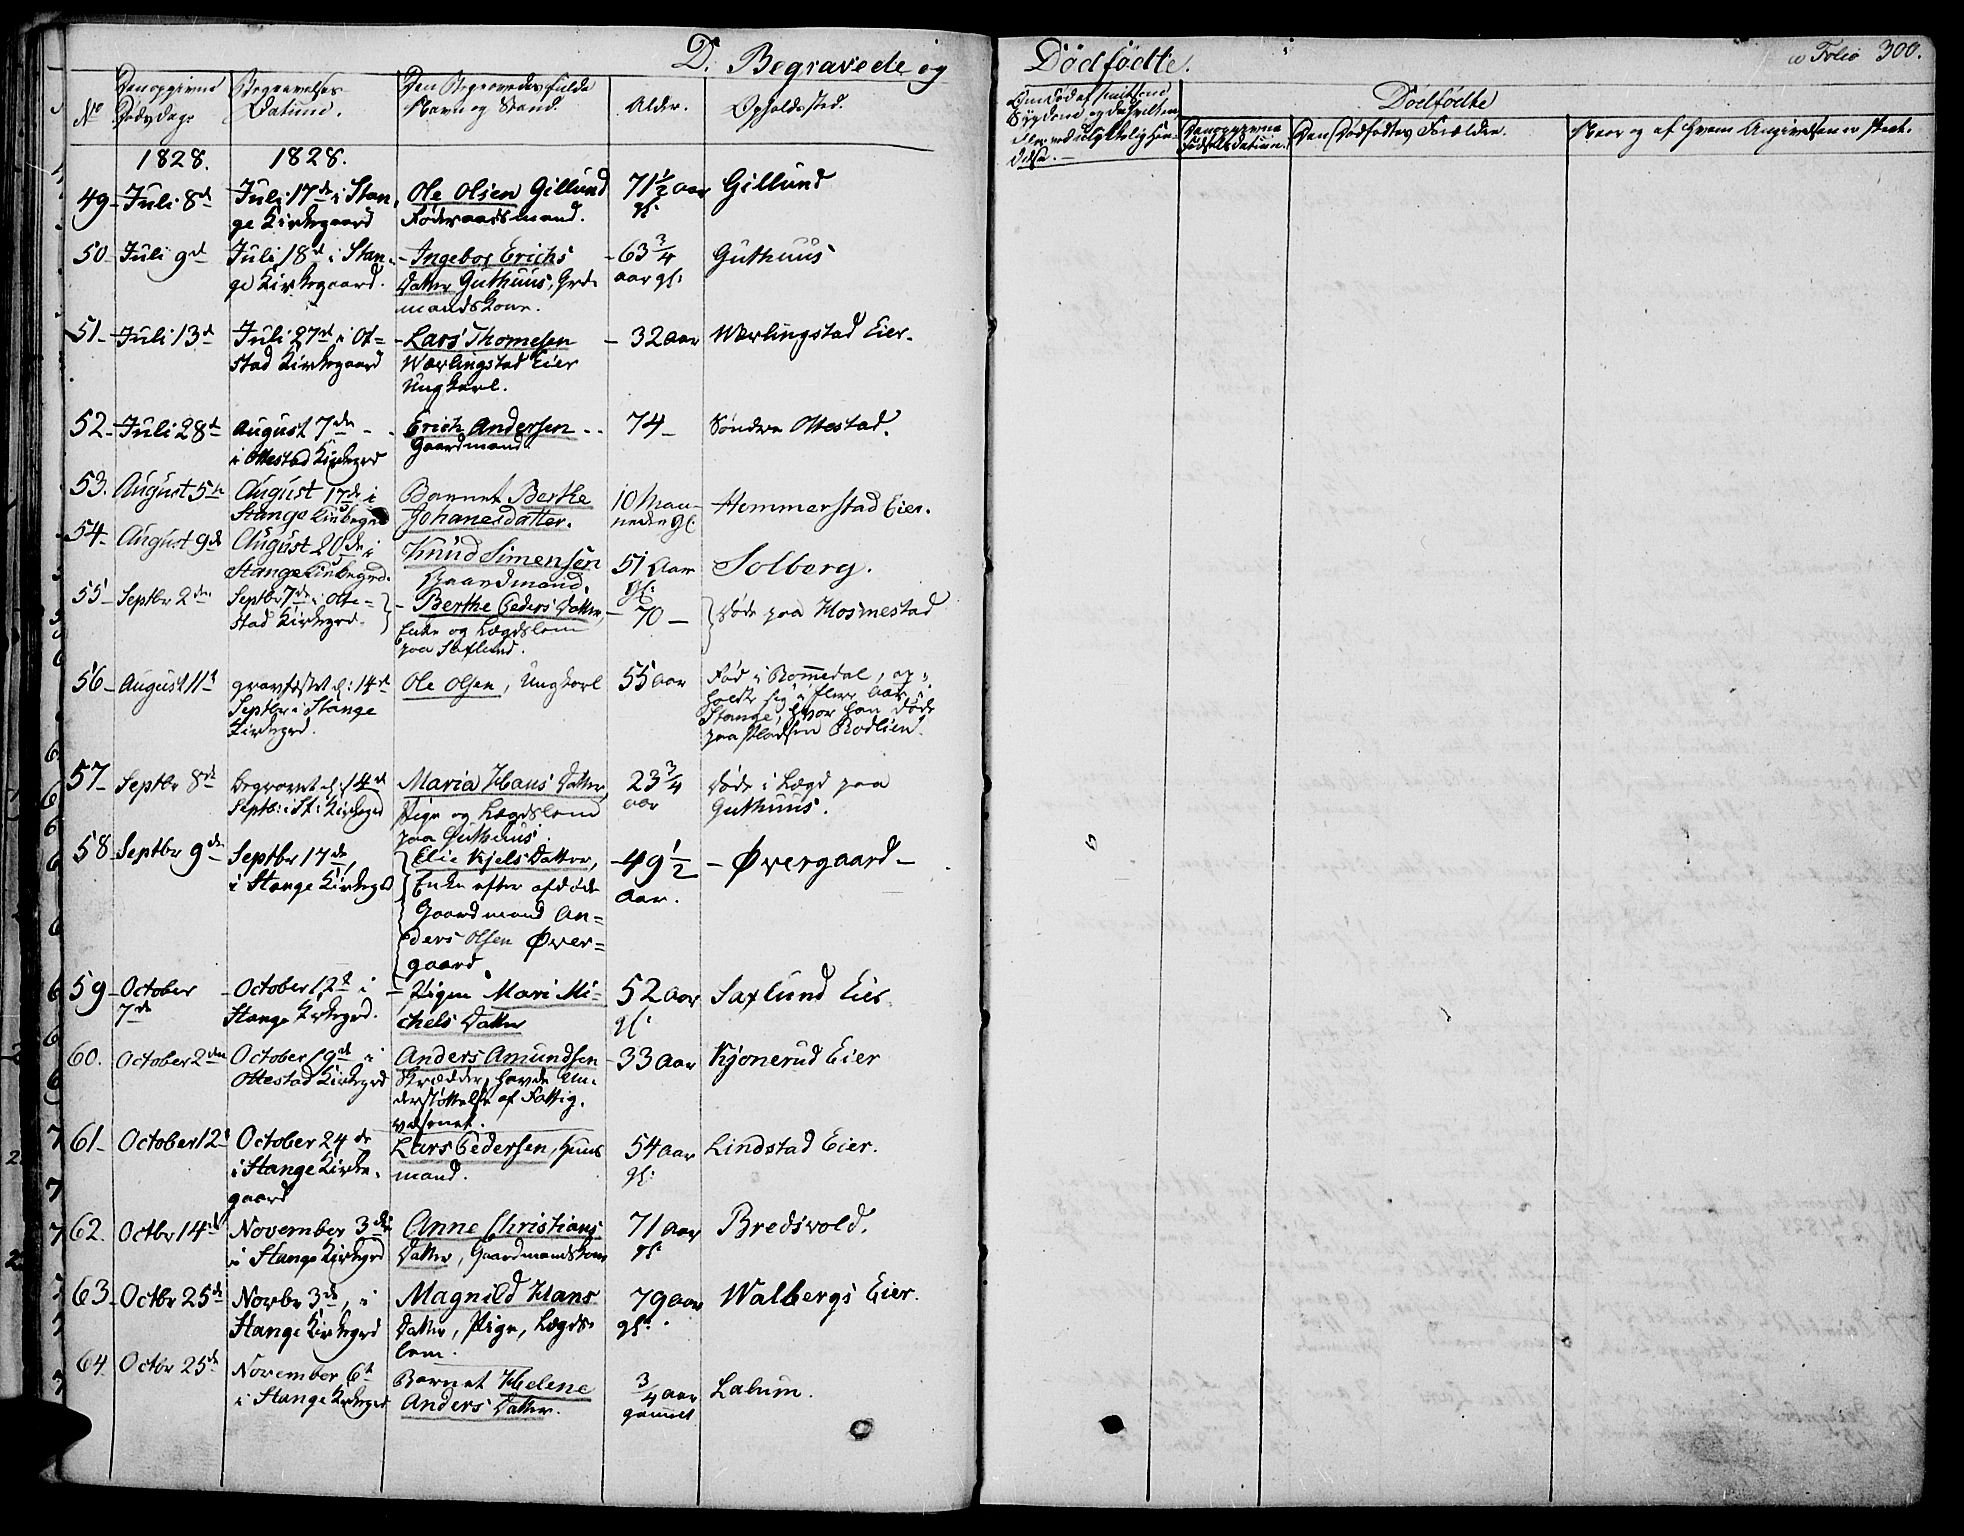 D. Begravede og Dødfødte.
Folio 300.
No
Den opgivne Døds Dag.
Begravelses Datum.
Den Begravedes fulde Navn og Stand.
Alder.
Opholdssted.
Dødfødte
Den opgivne Fødselsdatum.
Den Dødfødtes Forældre.
Naar og af hvem Angivelsen er skeet.
1828. 1828.
49- Juli 8de Juli 17de i Stange Kirkegaard Ole Olsen Gillund Føderaadsmand. 71½ aar gl. Gillund
50- Juli 9de Juli 18de i Stange Kirkegaard. Ingebor Erichs Datter Guthuus, Grdmandskone. 63¾ aar gl: Guthuus
51- Juli 13de Juli 27de i Otstad Kirkegaard Lars Thomesen Wærlingstad Eier Ungkarl. 32 aar Wærlingstad Eier.
52- Juli 28de August 7de i Ottestad Kirkegrd Erich Andersen Gaardmand. 74- Søndre Ottestad.
53. August 5te August 17de i Stange Kirkegrd Barnet Berthe Johanesdatter. 10 Maaneder gl. Hemmerstad Eier.
54- August 9de August 20de i Stange Kirkegrd. Knud Simensen Gaardmand. 51 Aar gl: Solberg.
55- Septbr 2den Septbr 7de i Ottestad Kirkegrd. Berthe Peders Datter, Enke og Lægdslem paa Saxlund. 70- Døde paa Hosmestad
56- August 11te gravfæstet d: 14de Septbr i Stange Kirkegrd. Ole Olsen, Ungkarl 55 aar Fød i Romedal, opholdt sig i flere Aar i Stange, hvor han døde paa Pladsen Rodlien.
57- Septbr 8de begravet d: 14de Septbr: i St: Kirkegrd Maria Hans Datter, Pige og Lægdslem paa Guthuus. 23¾ aar Døde i Lægd paa Guthuus.
58- Septbr 9de Septbr 17de, i Stange Kirkegrd Elie Kjels Datter, Enke efter afdøde Gaardmand Anders Olsen Øvergaard. 49½ Aar. -Øvergaard-
59- October 7de October 12te i Stange Kirkegrd. Pigen Mari Michels Datter 52 aar gl. Saxlund Eier.
60. October 2den October 19de i Ottestad Kirkegrd Anders Amundsen Skrædder, havde Understøttelse af Fattigvæsenet. 33 aar Kjonerud Eier
61- October 12te October 24de i Stange Kirkegaard Lars Pedersen, Huusmand. 54 aar gl: Lindstad Eier.
62. Octbr 14de November 3die i Stange Kirkegrd Anne Christians Datter, Gaardmandskone 71 aar gl: Bredsvold.
63- Octbr 25de Novbr 3die, i Stange Kirkegrd Magnild Hans Datter, Pige, Lægdslem. 79 aar gl: Walbergs Eier.
64. Octbr 25de November 6te i Stange Kirkegrd Barnet Helene Anders Datter. ¾ aar gammel Lalum.